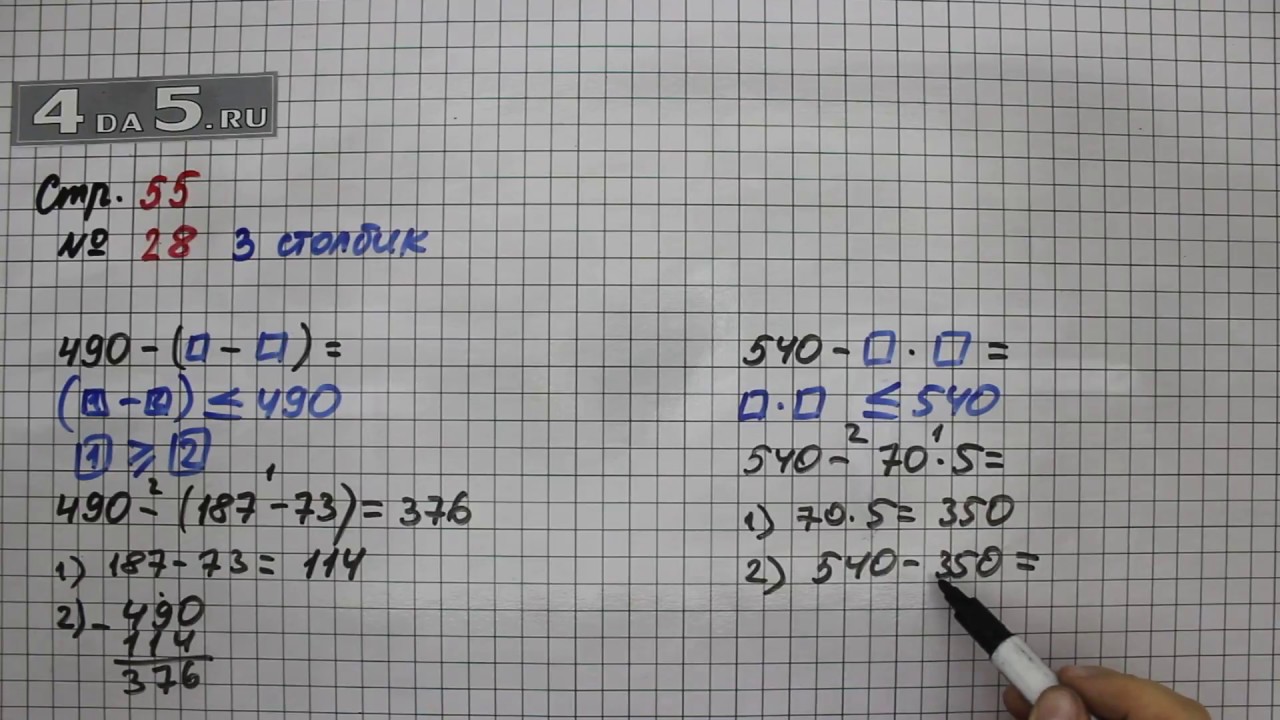 4 DA 5.RU
Стр. 55
№ 28 3 столбик
490 - (□ - □) =
(1 - 2) ≤ 490
1 ⩾ 2
2 1
490 - (187 - 73) = 376
1) 187 - 73 = 114
2) - 490
114
376
540 - □ · □ =
□ · □ ≤ 540
2 1
540 - 70 · 5 =
1) 70 · 5 = 350
2) 540 - 350 =